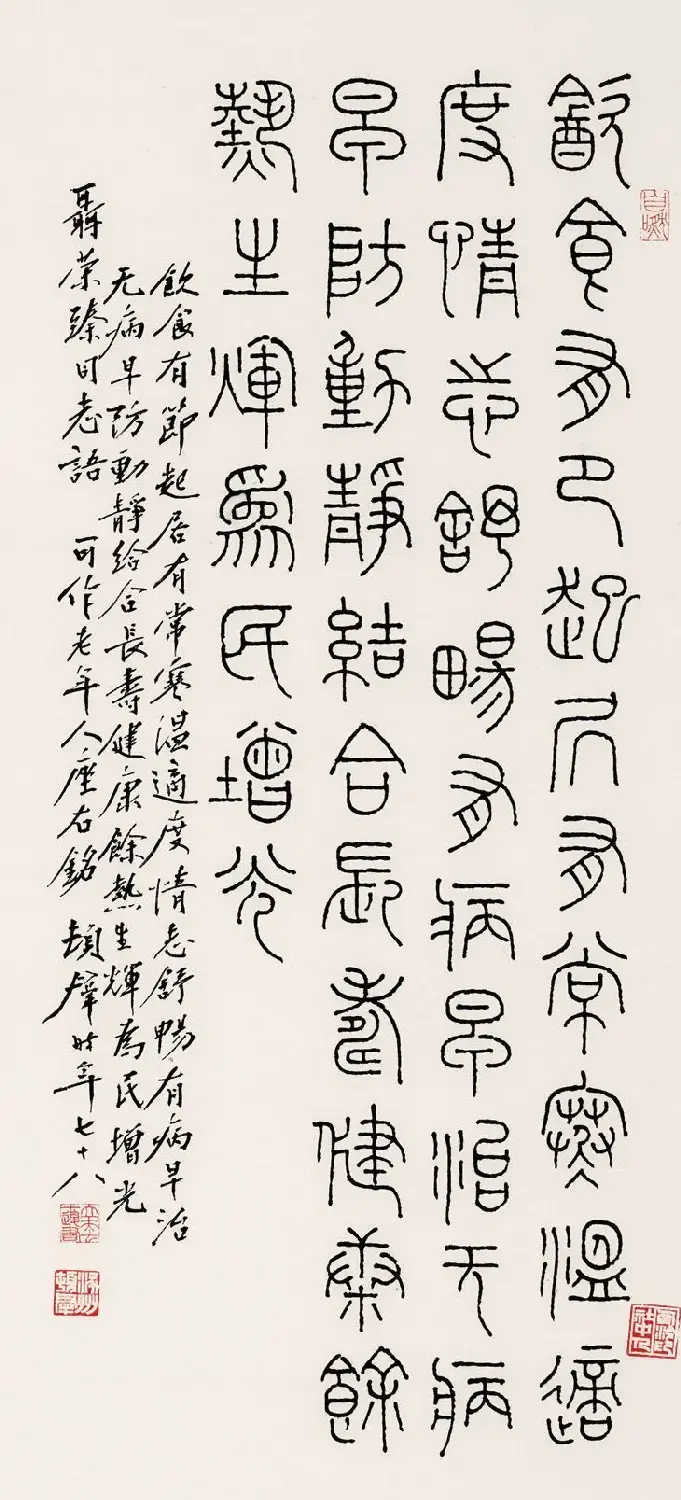 飲食有卪起凥有常寒溫適
度情志舒暢有病早治无病
早防動靜結合長壽健康餘
熱生輝為民增光
飲食有節起居有常寒温適度情志舒暢有病早治
无病早防動靜給合長壽健康餘熱生輝為民增光
聶荣臻同志語 可作老年人座右銘 頓羣時年七十八